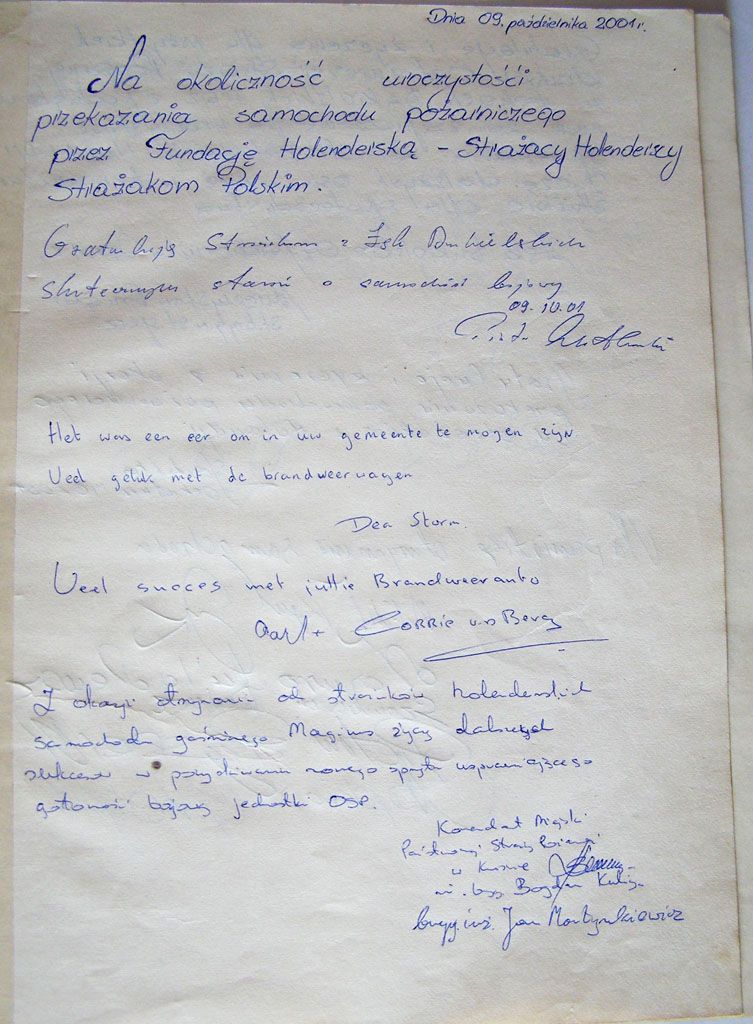 Dnia 09. października 2001 r.
Na okoliczność uroczystości
przekazania samochodu pożarniczego
przez Fundację Holenderską – Strażacy Holenderscy
Strażakom Polskim.
Gratuluję Strażakom z
skutecznych starań o samochód bojowy
09.10.01
Het was een eer om in uw gemeente te mogen zijn
Veel geluk met de brandweerwagen
Dea Storm.
Veel succes met jullie Brandweerauto
Carl + Corrie v.d Berg
Z okazji otrzymania od strażaków holenderskich
samochodu gaśniczego Magirus życzę dalszych
sukcesów w pozyskiwaniu nowego sprzętu usprawniającego
gotowość bojową jednostki OSP.
Komendant Miejski
Państwowej Straży Pożarnej
w
Bogdan
bryg. inż. Jan Martynkiewicz